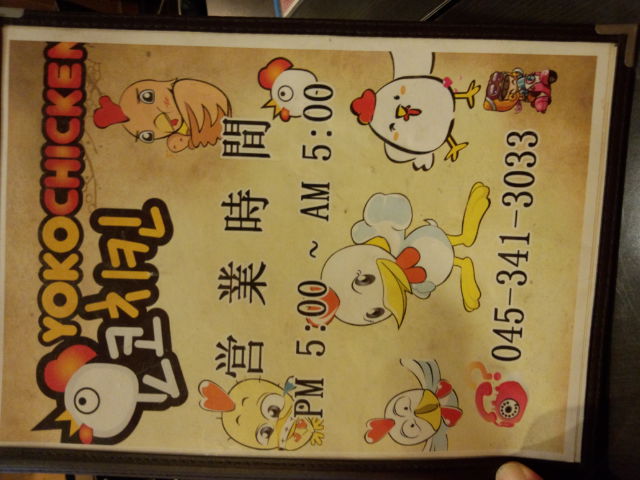 YOKOCHICKEN
요코치킨
営業時間
PM 5:00 ~ AM 5:00
045-341-3033